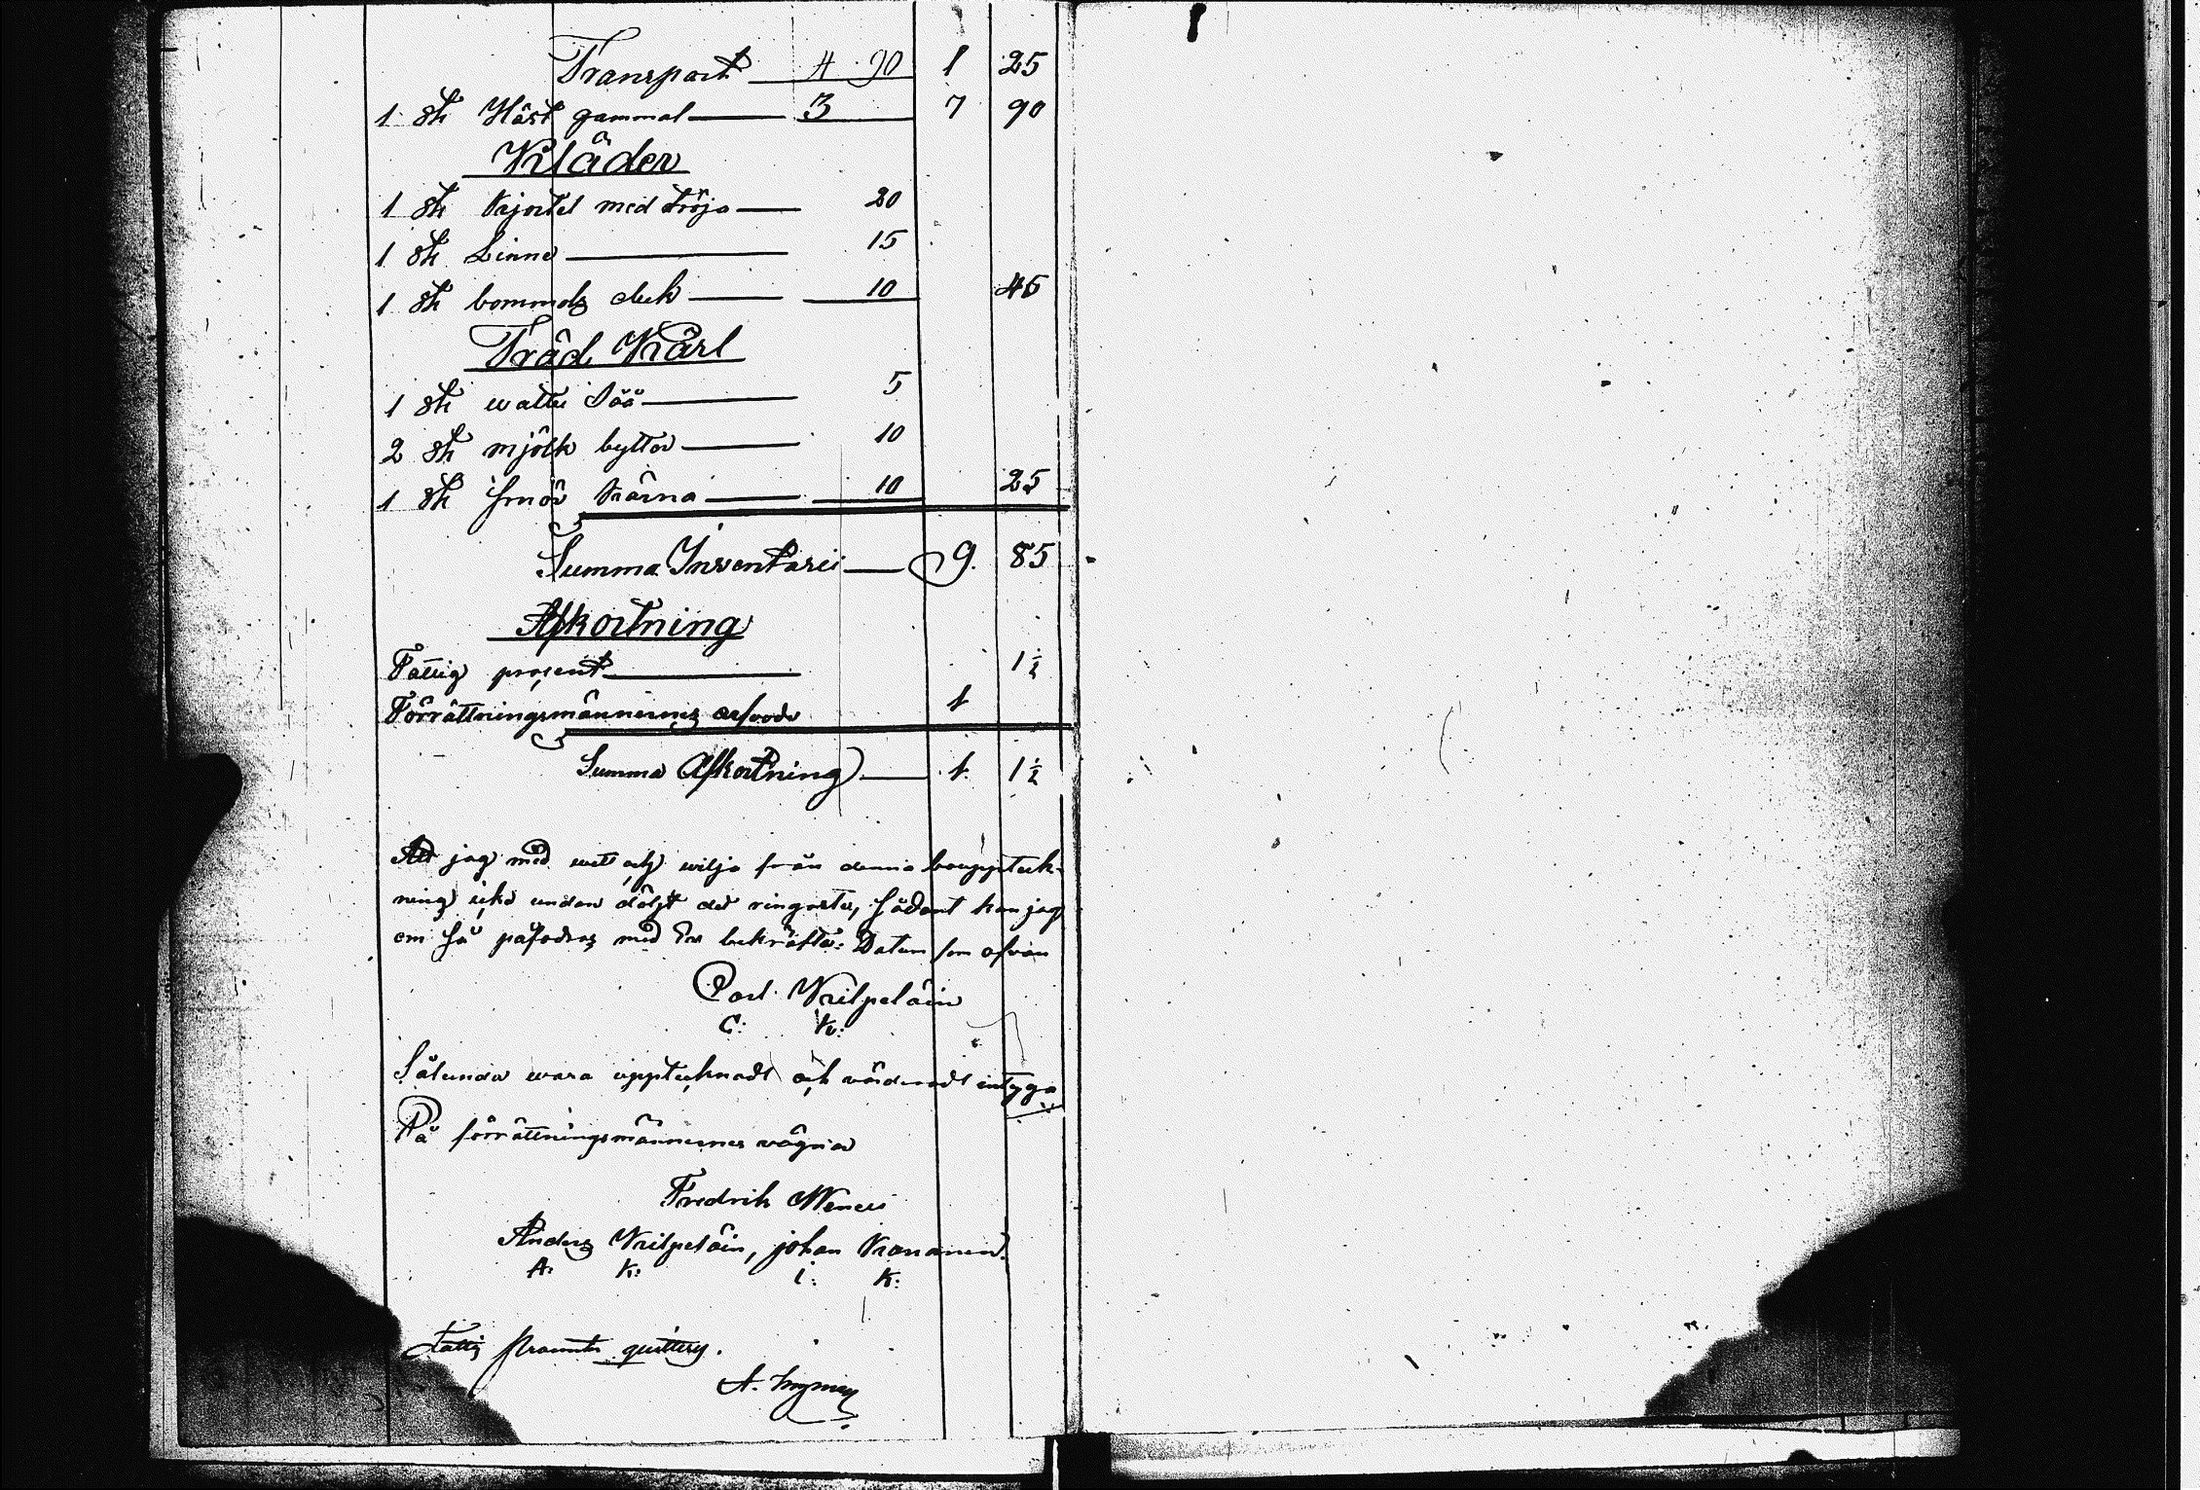 Transport — 4 90 1 25
1 st Häst gammal — 3 7 90
Kläder
1 st Kjortel med tröja — 20
1 st Linne — 15
1 st bommulls duk — 10 45
Träd Kärl
1 st watten Såå — 5
2 st mjölk byttor — 10
1 st Smör kärna — 10 25
Summa Inventarii — 9. 85
Afkortning
Fattig procent — 1½
Förrättningsmännernes arfvode 1
Summa Afkortning — 1 1½
Att jag med wett och wilja från denna bouppteck-
ning icke undan döljt det ringaste, sådant kan jag
om så påfodras med Ed bekräfta: Datum som ofvan
Carl Kilpeläin
C: K:
Sålunda wara upptecknadt och värderadt intyga
På förrättningsmännernes vägnar
Fredrik
Anders Kilpeläin, johan Kananen
A: K: i: K:
Fattig procento quitteras.
A.